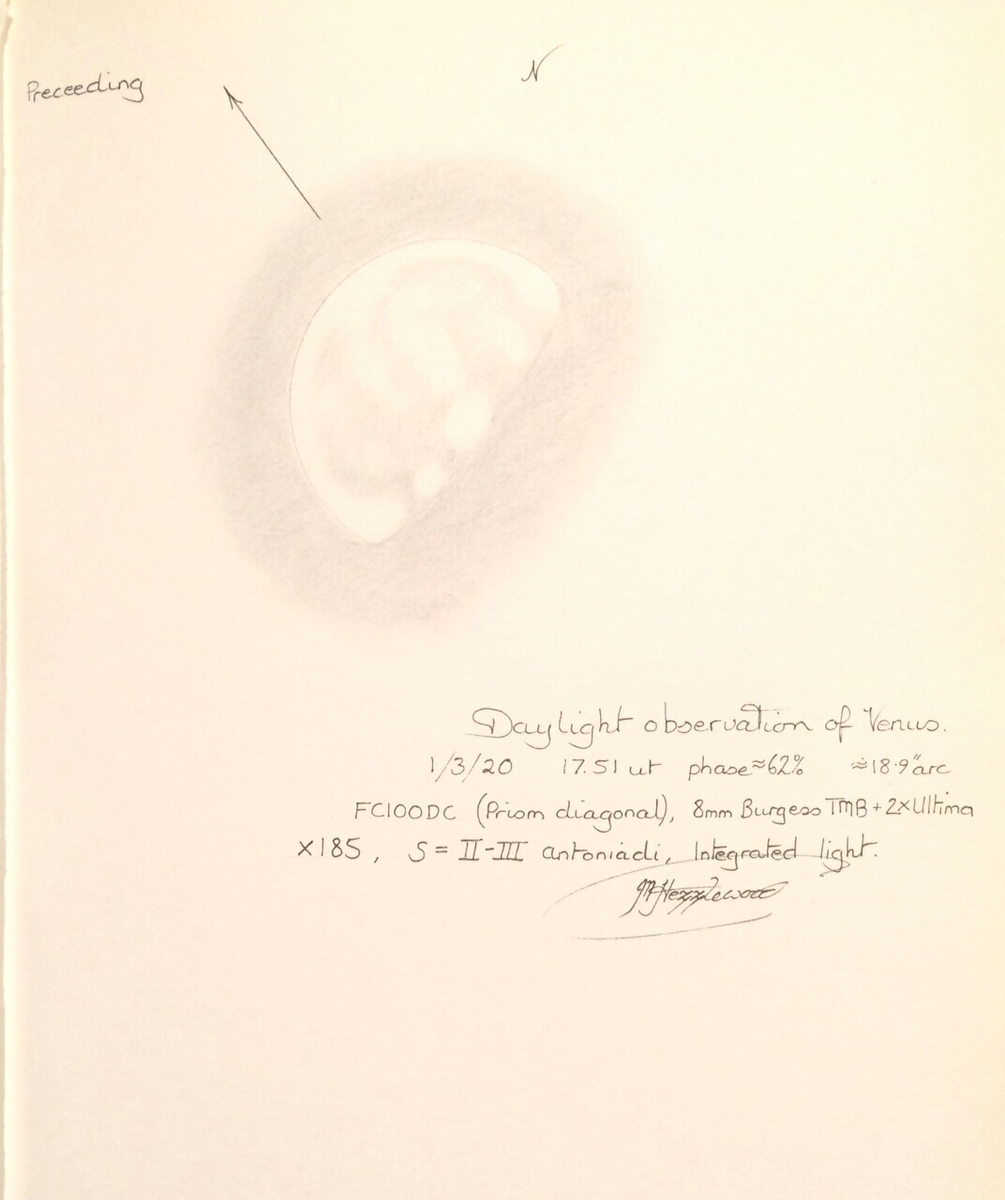 N
Preceeding
Daylight observation of Venus.
1/3/20 17.51 ut phase≈62% ≈18.9"arc
FC100DC (Prism diagonal), 8mm Burgess TMB + 2x Ultima
x185, S = II-III antoniadi, Integrated light.